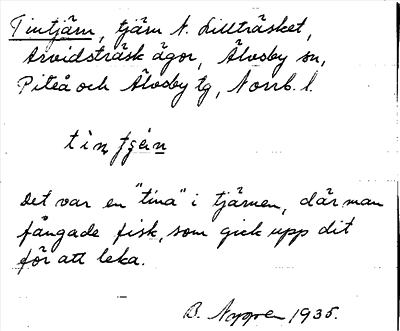 Tintjärn, tjärn N. Lillträsket,
Arvidsträsk ägor, Älvsby sn,
Piteå och Älvsby tg, Norrb. l.
Det var en "tina" i tjärnen, där man
fångade fisk, som gick upp dit
för att leka.
B. Nygren 1935.